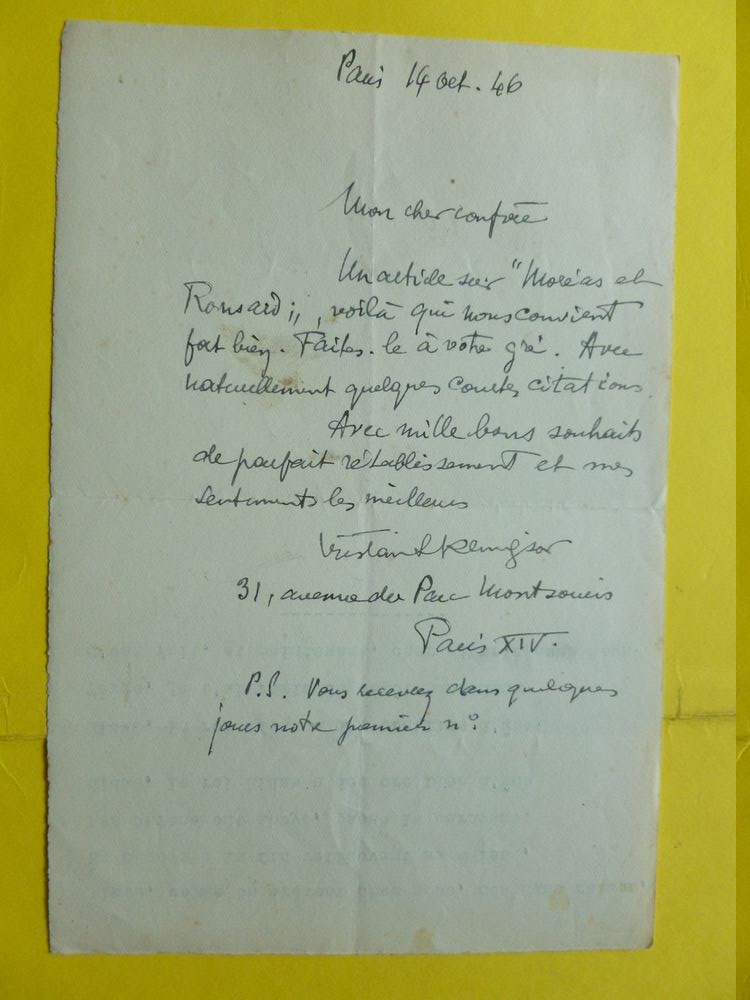 Paris 14 oct. 46
Mon cher confrère
Un article sur "Moréas et
Ronsard", voilà qui nous convient
fort bien. Faites-le à votre gré. Avec
naturellement quelques courtes citations.
Avec mille bons souhaits
de parfait rétablissement et mes
sentiments les meilleurs
Tristan
31, avenue du Parc Montsouris
Paris XIV.
P.S. Vous recevrez dans quelques
jours notre premier n°.